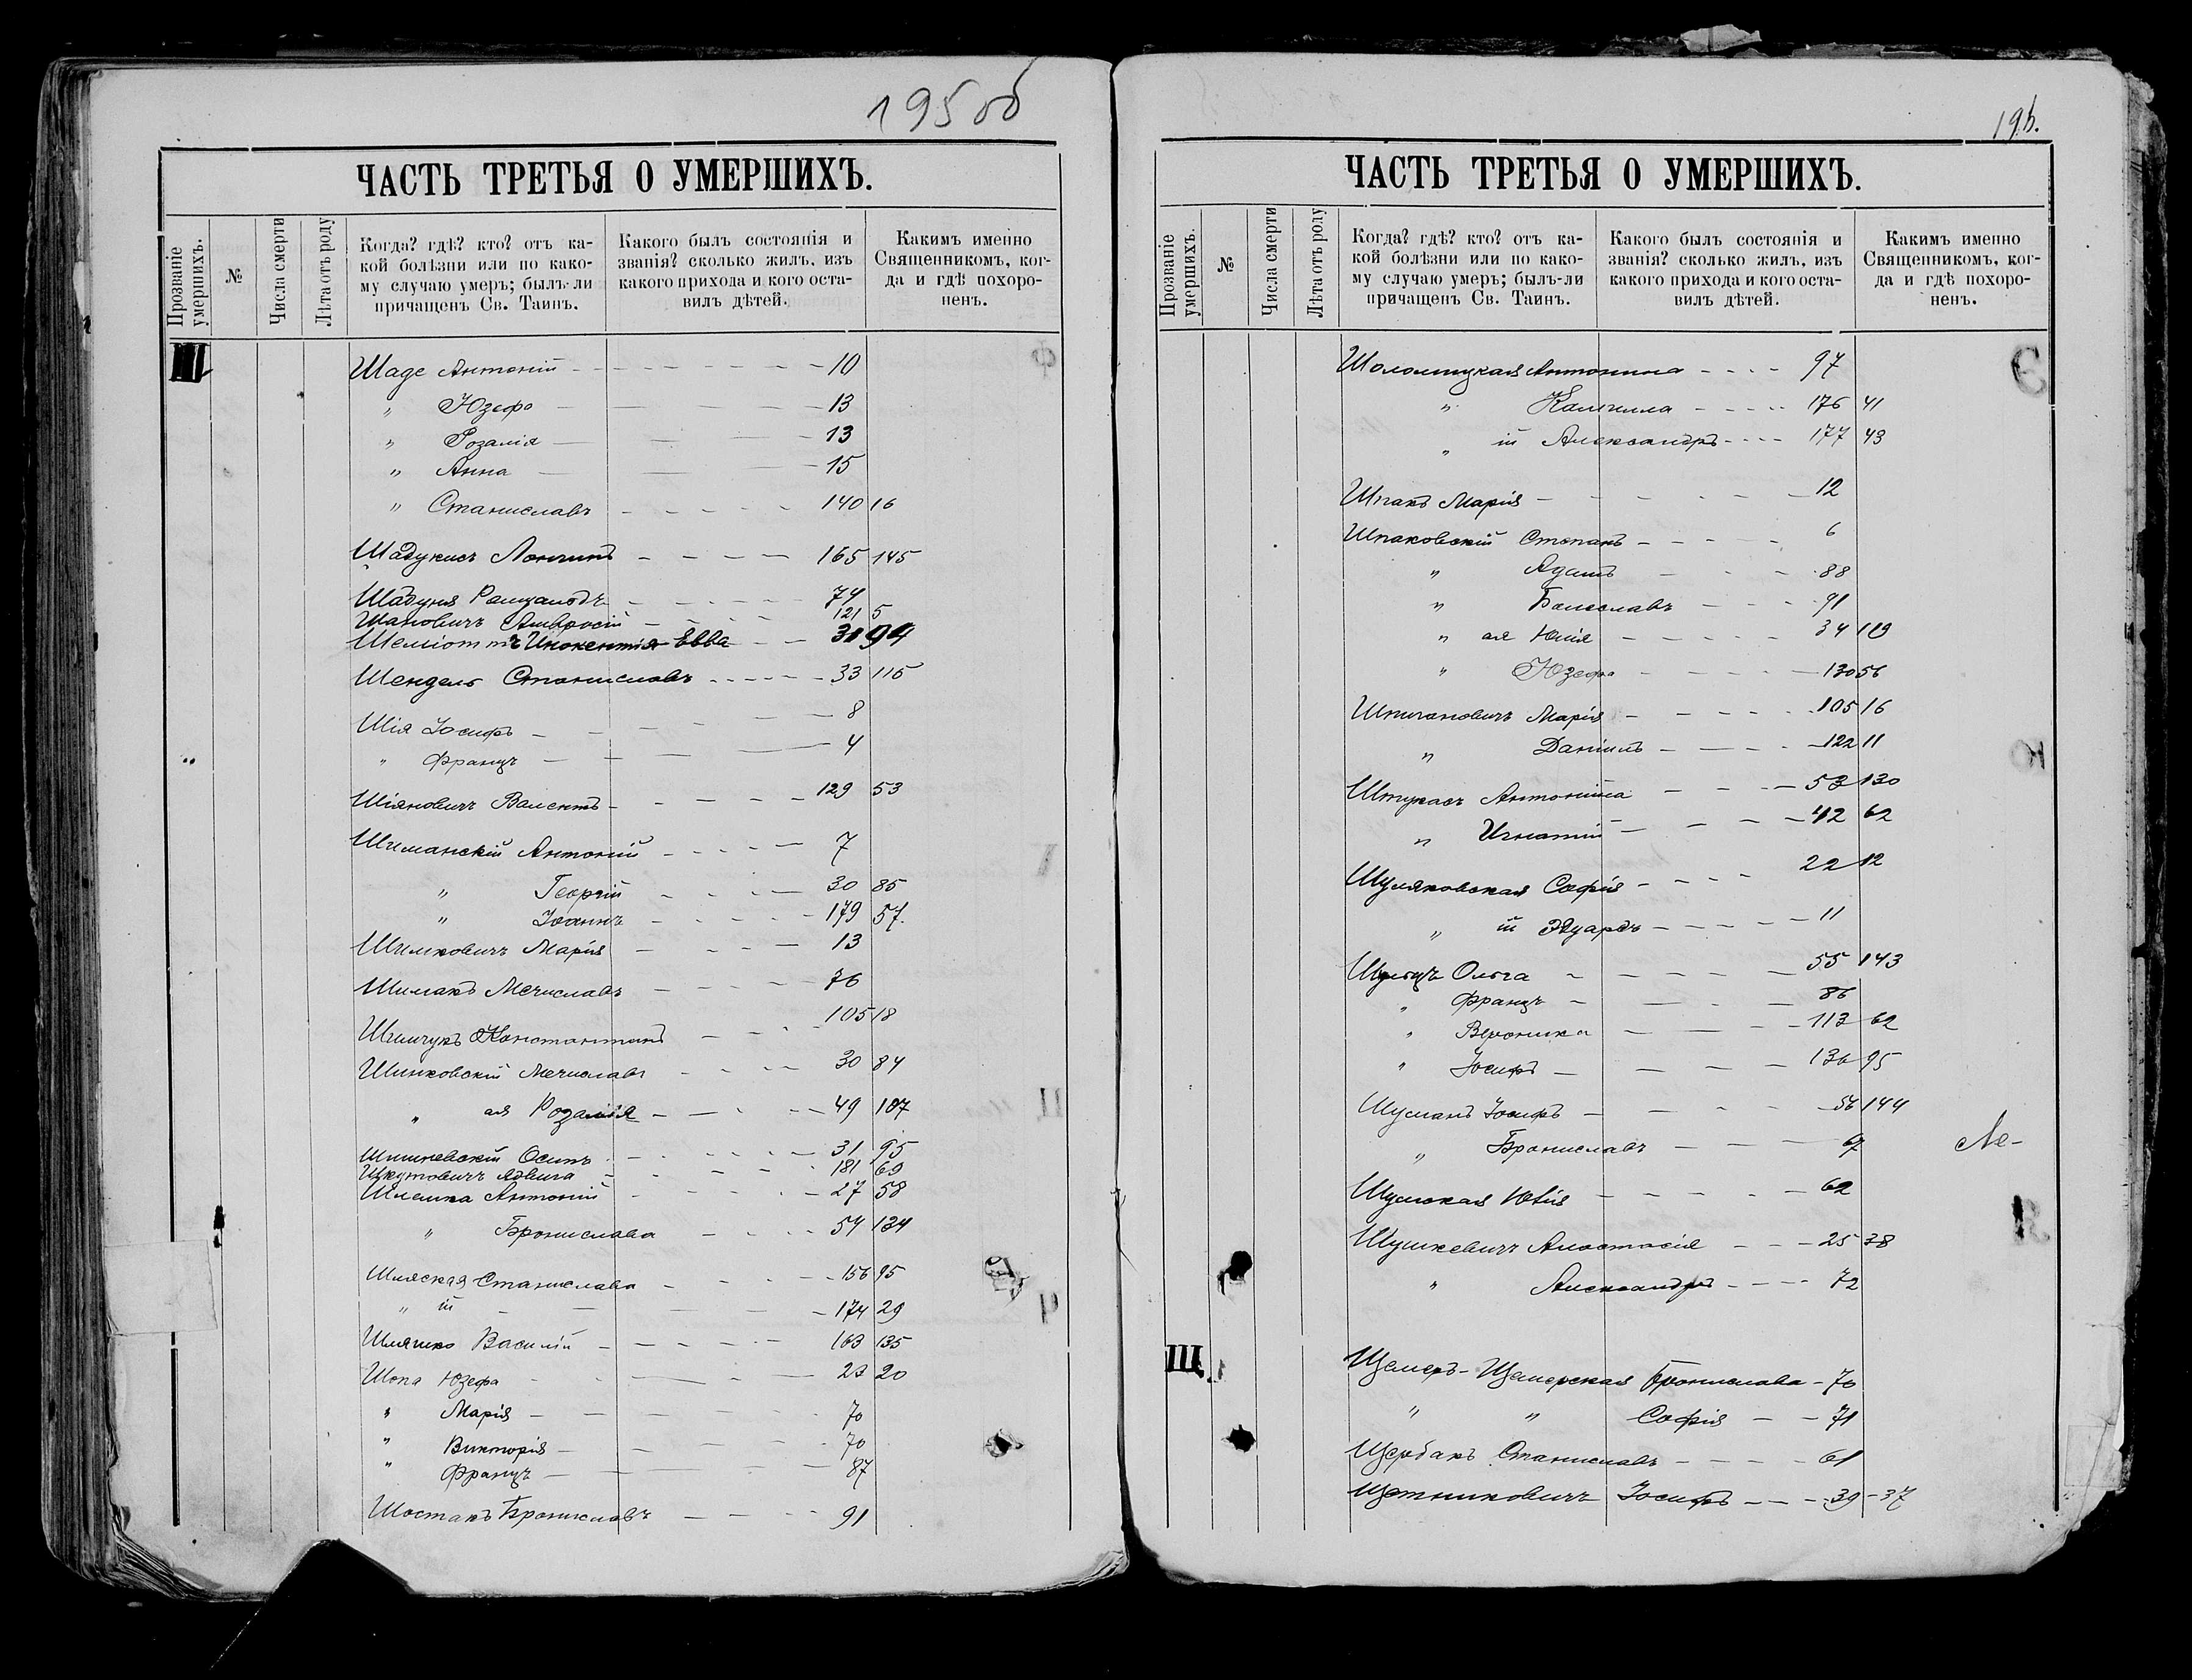 195 об
ЧАСТЬ ТРЕТЬЯ О УМЕРШИХЪ.
Прозваніе умершихъ.
№
Числа смерти
Лѣта отъ роду
Когда? гдѣ? кто? отъ ка-
кой болѣзни или по како-
му случаю умеръ; былъ-ли
причащенъ Св. Таинъ.
Какого былъ состоянія и
званія? сколько жилъ, изъ
какого прихода и кого оста-
вилъ дѣтей.
Какимъ именно
Священникомъ, ког-
да и гдѣ похоро-
ненъ.
Ш
Шаде Антоній - - - - 10
" Юзефа — — — 13
" Розалія — — — 13
" Анна — — — 15
" Станиславъ - - - - 140 16
Шадукисъ Лонгинъ - - - - 165 145
Шадуня Ромуальдъ - - - - 74
Шановичъ Амвросій - - - - 121 5
Шеміотъ Инокентія Евва - - 31 94
Шендель Станиславъ - - - - 33 115
Шія Іосифъ - - - - 8
" Францъ — — — 4
Шіяновичъ Валентъ - - - - 129 53
Шиманскій Антоній - - - - 7
" Георгій - - - - 30 85
" Іоаннъ - - - - 179 57.
Шимковичъ Марія - - - - 13
Шимакъ Мечиславъ - - - - 76
Шимчукъ Константинъ - - - - 105 18
Шинковскій Мечиславъ - - - - 30 84
" ая Розалія - - - - 49 107
Шишневскій Осипъ - - - - 31 95
Шкутовичъ Ядвига - - - - 181 69
Шлемка Антоній - - - - 27 58
" Бронислава - - - - 54 134
Шляская Станислава - - - - 156 95
" ій - - - - 174 29
Шлячко Василій - - - - 163 135
Шопа Юзефа - - - - 23 20
" Марія - - - - 70
" Викторія - - - - 70
" Францъ - - - - 87
Шостакъ Брониславъ - - - - 91
196.
ЧАСТЬ ТРЕТЬЯ О УМЕРШИХЪ.
Прозваніе умершихъ.
№
Числа смерти
Лѣта отъ роду
Когда? гдѣ? кто? отъ ка-
кой болѣзни или по како-
му случаю умеръ; былъ-ли
причащенъ Св. Таинъ.
Какого былъ состоянія и
званія? сколько жилъ, изъ
какого прихода и кого оста-
вилъ дѣтей.
Какимъ именно
Священникомъ, ког-
да и гдѣ похоро-
ненъ.
Шоломицкая Антонина - - - - 97
" Камилла - - - - 176 41
" ій Александръ - - - - 177 43
Шпакъ Марія - - - - 12
Шпаковскій Степанъ - - - - 6
" Адамъ - - - - 88
" Болеславъ - - - - 91
" ая Юлія - - - - 34 119
" Юзефа - - - - 130 56
Шпигановичъ Марія - - - - 105 16
" Даніилъ - - - - 122 11
Штукасъ Антонина - - - - 53 130
" Игнатій - - - - 42 62
Шуляковская Софія - - - - 22 12
" ій Эдуардъ - - - - 11
Шульцъ Ольга - - - - 55 143
" Францъ - - - - 86
" Вероника - - - - 113 62
" Іосифъ - - - - 136 95
Шуманъ Іосифъ - - - - 56 144
" Брониславъ - - - - 67
Шумская Юлія - - - - 62
Шушкевичъ Анастасія - - - 25 38
" Александръ - - - - 72
Щ
Щемеръ-Щемерская Бронислава - 70
" " Софія - - 71
Щербакъ Станиславъ - - - - 61
Щетниковичъ Іосифъ - - - 39 - 37